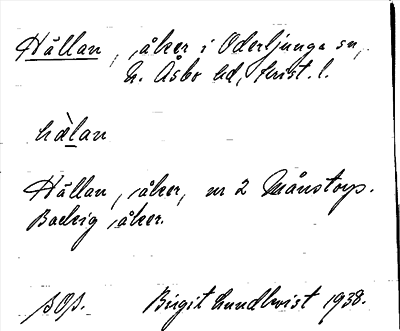 Hållan, åker i Oderljunga sn,
N. Åsbo hd, Krist. l.
hàlan
Hållan, åker, nr 2 Månstorp.
Backig åker.
sOp. Birgit Lundkvist 1938.